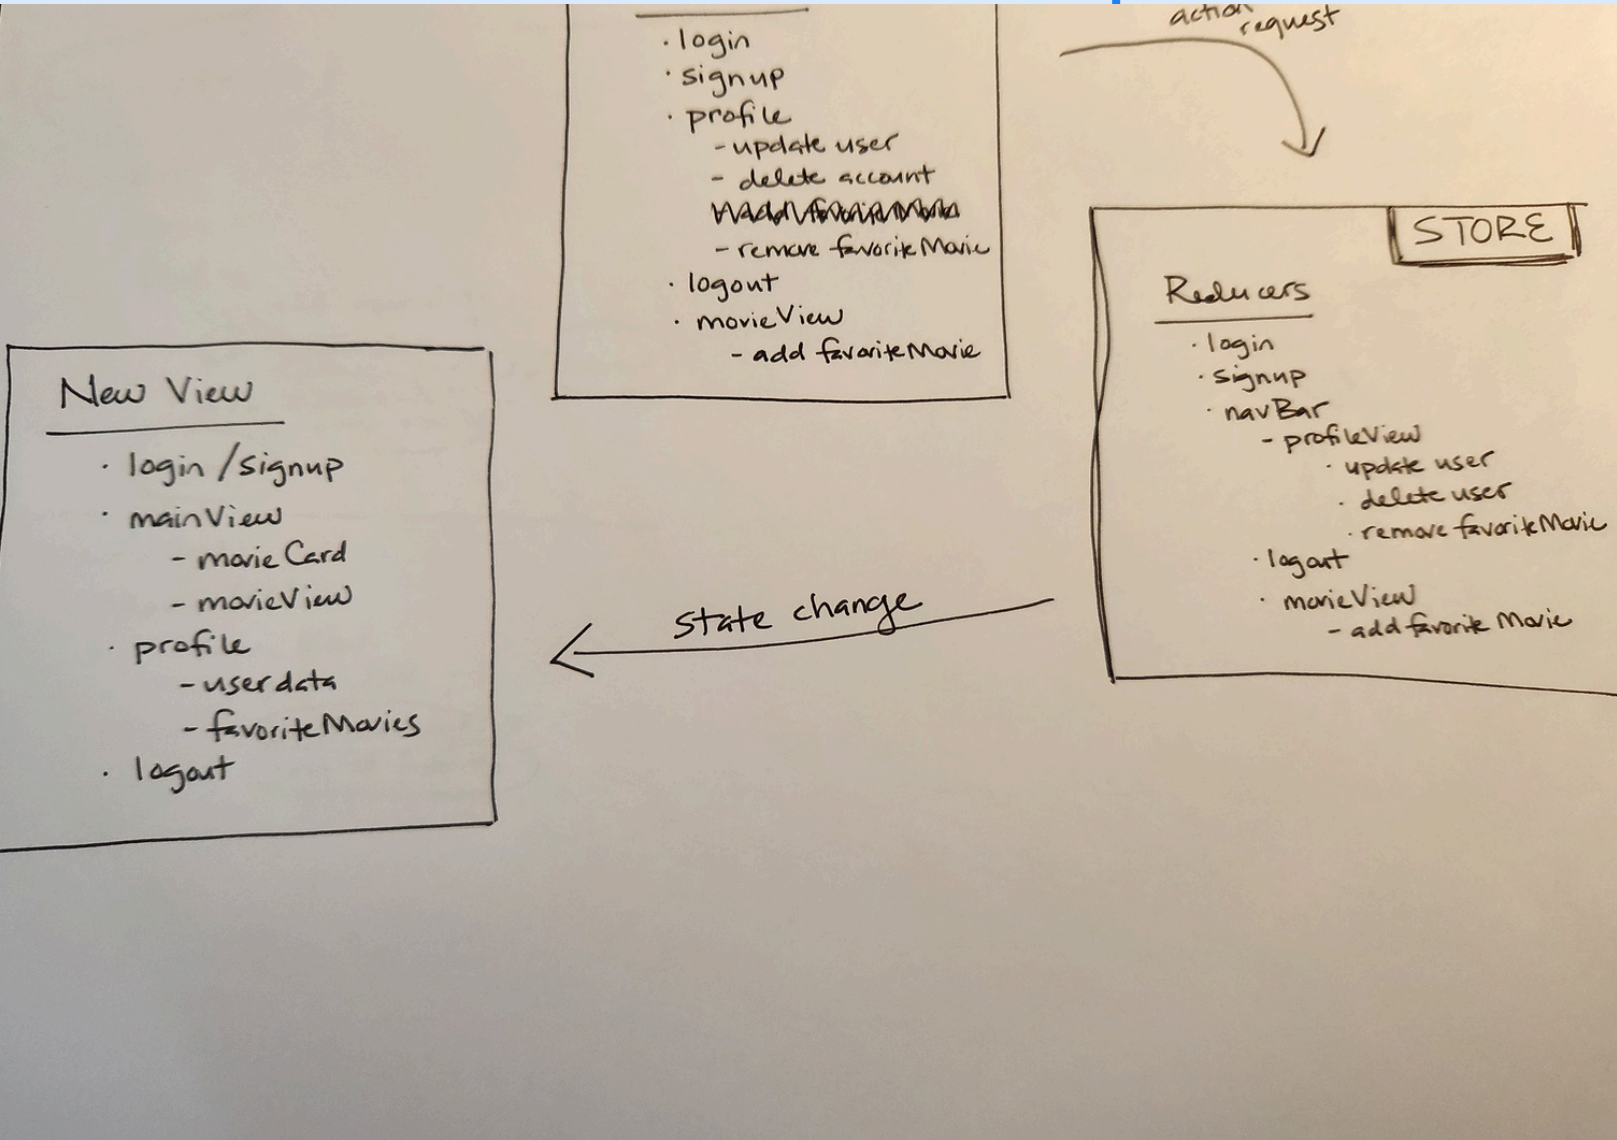 · login
· signup
· profile
- update user
- delete account
- remove favoriteMovie
· logout
· movieView
- add favoriteMovie
action
request
STORE
Reducers
· login
· signup
· navBar
- profileView
· update user
· delete user
· remove favoriteMovie
· logout
· movieView
- add favorite Movie
state change
New View
· login /signup
· mainView
- movieCard
- movieView
· profile
- userdata
- favoriteMovies
· logout